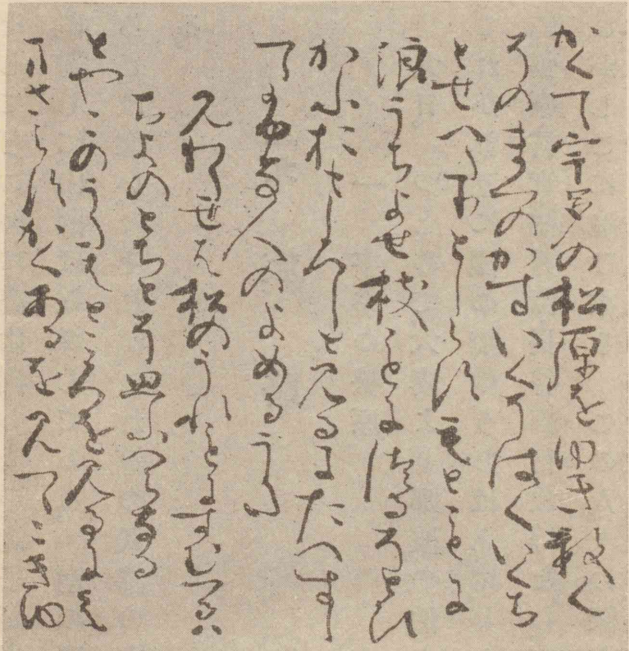 かくて宇多の松原をゆきすく
そのまつのかすいくそはくいくち
とせへたりとしらすもとことに
浪うちよせ枝ことにつるそとひ
かふおもしろしと見るにたへすし
てふな人のよめるうた
見わたせは松のうれことにすむつるは
ちよのとちとそ思ふへらなる
とやこのうたはところを見るにえ
まさらすかくあるを見つゝこきゆ